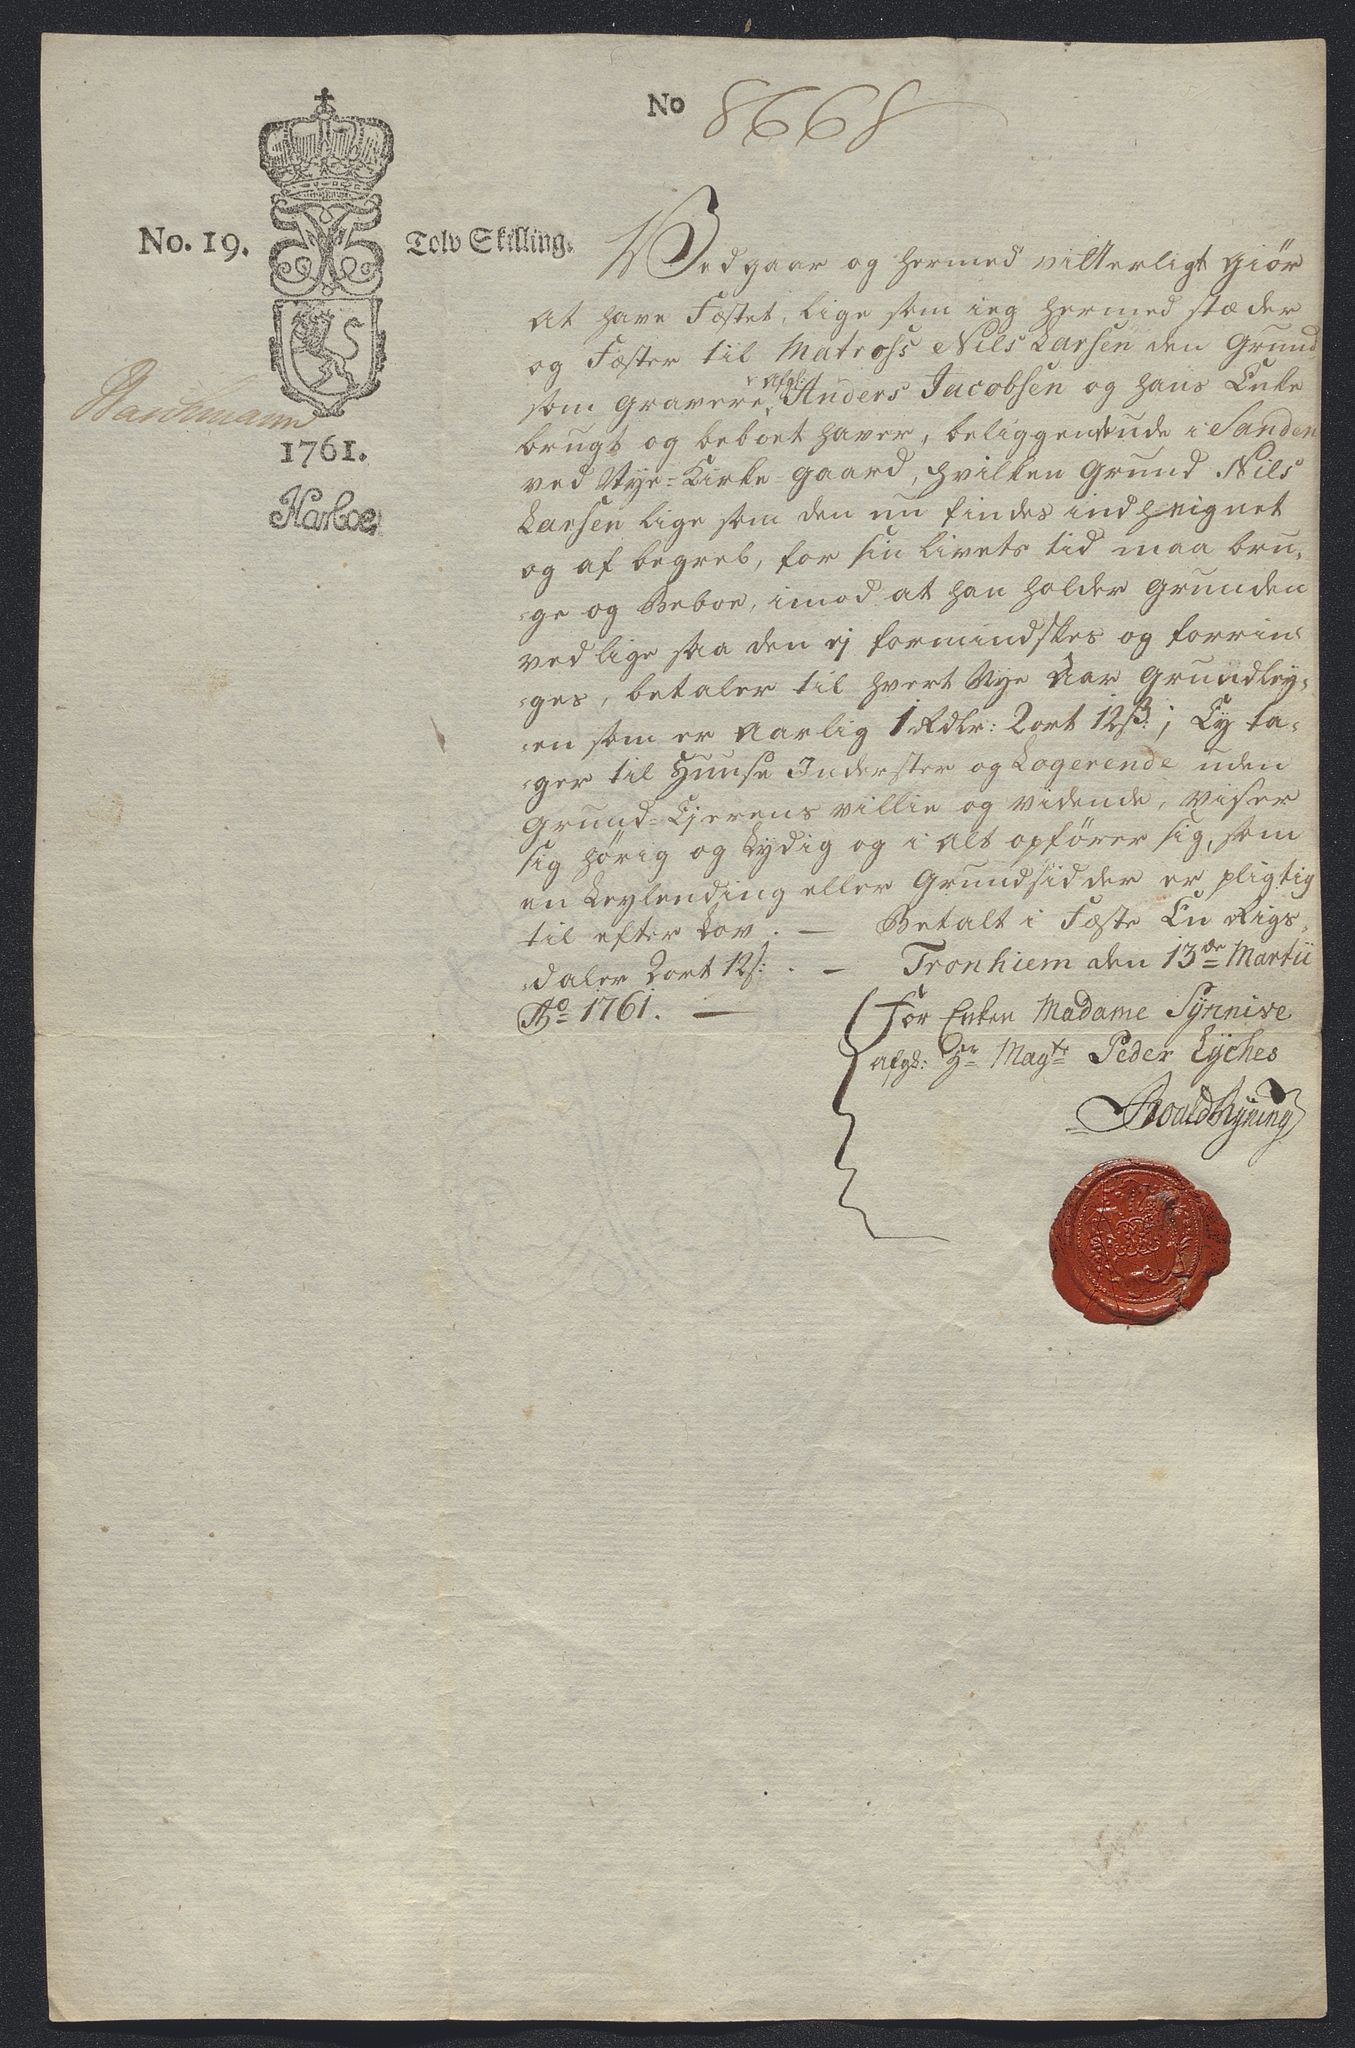 No 8668
No. 19. Tolv Skilling.
1761.
Harboe
Vedgaar og hermed vitterligt giör
At have Fæstet, lige som ieg hermed stæder
og Fæster til Matrofs Nils Larsen den Grund
som Gravere afgl: Anders Jacobsen og hans Enke
brugt og beboet haver, beliggende ude i Sanden
ved Nye-Kirke-gaard, hvilken Grund Nils
Larsen lige som den nu findes indheignet
og af begreb, for sin livets tid maa bru-
-ge og Beboe, imod at han holder Grunden
ved lige saa den ej formindskes og forrin-
-ges, betaler til hvert Nye Aar Grundley-
-en som er Aarlig 1 Rdlr: 2 ort 12 ß.; Ey ta-
-ger til Huuse Inderster og Logerende uden
Grund-Ejerens villie og vidende, viser
sig hörig og Lydig og i Alt opförer sig, som
en Leylending eller Grundsidder er pligtig
til efter Lov. — Betalt i Fæste En Rigs-
-daler 2 ort 12 ß: — Tronhiem den 13de Martii
Ao 1761. —
For Enken Madame Synnive
afgl: Hr. Magtr Peder Lyches
Roald Nyning